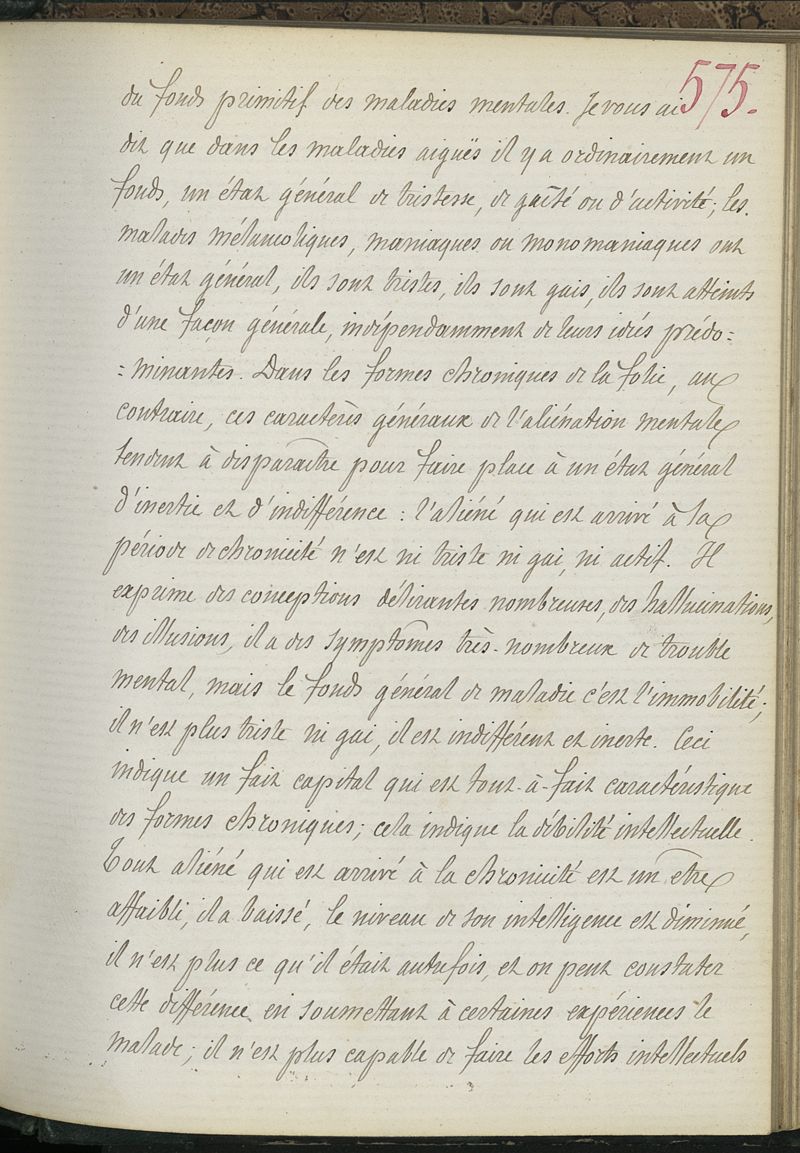 575.
du fonds primitif des maladies mentales. Je vous ai
dit que dans les maladies aiguës il y a ordinairement un
fonds, un état général de tristesse, de gaîté ou d'activité; les
malades mélancoliques, maniaques ou monomaniaques ont
un état général, ils sont tristes, ils sont gais, ils sont atteints
d'une façon générale, indépendamment de leurs idées prédo=
=minantes. Dans les formes chroniques de la folie, au
contraire, ces caractères généraux de l'aliénation mentale
tendent à disparaître pour faire place à un état général
d'inertie et d'indifférence : l'aliéné qui est arrivé à la
période de chronicité n'est ni triste ni gai, ni actif. Il
exprime des conceptions délirantes nombreuses, des hallucinations,
des illusions, il a des symptômes très-nombreux de trouble
mental, mais le fonds général de maladie c'est l'immobilité;
il n'est plus triste ni gai, il est indifférent et inerte. Ceci
indique un fait capital qui est tout-à-fait caractéristique
des formes chroniques; cela indique la débilité intellectuelle.
Tout aliéné qui est arrivé à la chronicité est un être
affaibli, il a baissé, le niveau de son intelligence est diminué,
il n'est plus ce qu'il était autrefois, et on peut constater
cette différence en soumettant à certaines expériences le
malade; il n'est plus capable de faire les efforts intellectuels